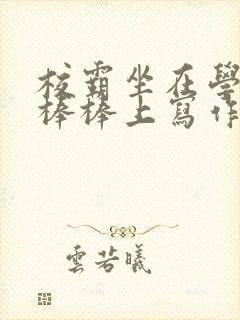 校霸坐在學
棒棒上寫作
雲若曦